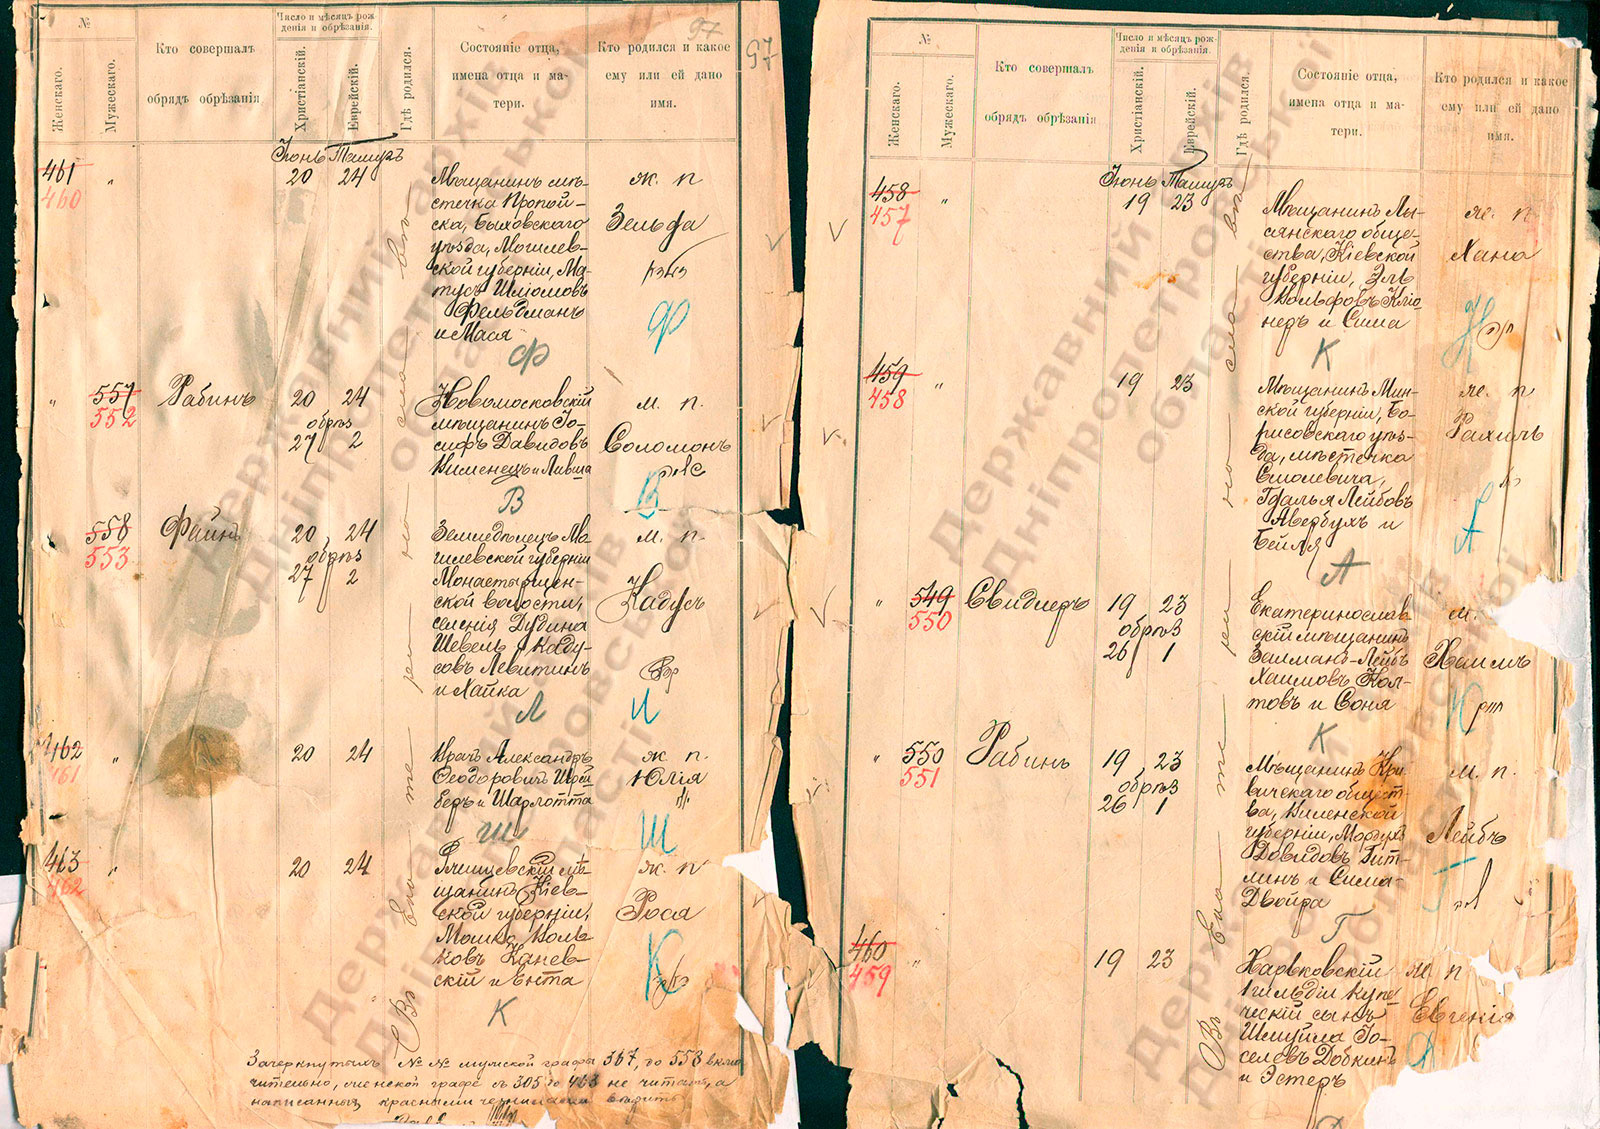 97
97
№
Женскаго.
Мужескаго.
Кто совершалъ
обрядъ обрѣзанія
Число и мѣсяцъ рож-
денія и обрѣзанія.
Христіанскій.
Еврейскій.
Гдѣ родился.
Состояніе отца,
имена отца и ма-
тери.
Кто родился и какое
ему или ей дано
имя.
Іюнь Тамузъ
461
460
"
20 24
Мѣщанинъ мѣ-
стечка Пропой-
ска, Быховскаго
уѣзда, Могилев-
ской губерніи, Ма-
тусъ Шліомовъ
Фельдманъ
и Мася
Ф
ж. п
Зельда
Ф
"
557
552
Рабинъ
20 24
обрѣз
27 2
Новомосковскій
мѣщанинъ Іо-
сифъ Давидовъ
Виленецъ и Ливша
В
м. п.
Соломонъ
В
558
553
Файнъ
20 24
обрѣз
27 2
Земледѣлецъ Мо-
гилевской губерніи
Монастырщен-
ской волости,
селенія Дудина
Шевель Каду-
совъ Левитинъ
и Хайка
Л
м. п.
Кадусъ
Л
462
461
"
20 24
Врачъ Александръ
Ѳеодоровичъ Шрей-
беръ и Шарлотта
Ш
ж п.
Юлія
Ш
463
462
"
20 24
мѣ-
щанинъ Кіев-
ской губерніи,
Мошко Воль-
ковъ Канев-
скій и Ента
К
ж. п
Рося
К
Въ Екате ри но сла вѣ
Зачеркнутыхъ №№ мужской графы 557, до 558 вклю-
чительно, женской графѣ съ 305 до 463 не читать, а
написанныя красными чернилами вѣрить
№
Женскаго.
Мужескаго.
Кто совершалъ
обрядъ обрѣзанія
Число и мѣсяцъ рож-
денія и обрѣзанія.
Христіанскій.
Еврейскій.
Гдѣ родился.
Состояніе отца,
имена отца и ма-
тери.
Кто родился и какое
ему или ей дано
имя.
Іюнь Тамузъ
458
457
"
19 23
Мѣщанинъ Лы-
сянскаго обще-
ства, Кіевской
губерніи, Эль
Вольфовъ Кліо-
неръ и Сима
К
же. п.
Хана
459
458
"
19 23
Мѣщанинъ Мин-
ской губерніи, Бо-
рисовскаго уѣз-
да, мѣстечка
Смолевича,
Гдалья Лейбовъ
Авербухъ и
Бейля
А
же. п
Рахиль
А
"
549
550
Свидлеръ
19 23
обрѣз
26 1
Екатеринослав
скій мѣщанинъ
Залманъ-Лейбъ
Хаимовъ Кол-
товъ и Соня
К
м.
Хаимъ
К
"
550
551
Рабинъ
19 23
обрѣз
26 1
Мѣщанинъ Кри-
вичскаго общест-
ва, Виленской
губерніи, Мордухъ
Довидовъ Гит-
линъ и Сима-
Двойра
Г
м. п.
Лейбъ
Г
460
459
"
19 23
Харьковскій
1 гильдіи купе-
ческій сынъ
Шмуйла Іо-
селевъ Добкинъ
и Эстеръ
же. п
Евгенія
Д
Въ Екате ри но сла вѣ
Державний архів
Дніпропетровської
області